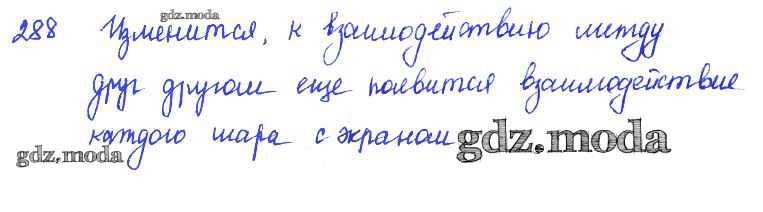 gdz.moda
288 Изменится, к взаимодействию между
gdz.moda
друг другом еще появится взаимодействие
каждого шара с экраном gdz.moda
gdz.moda